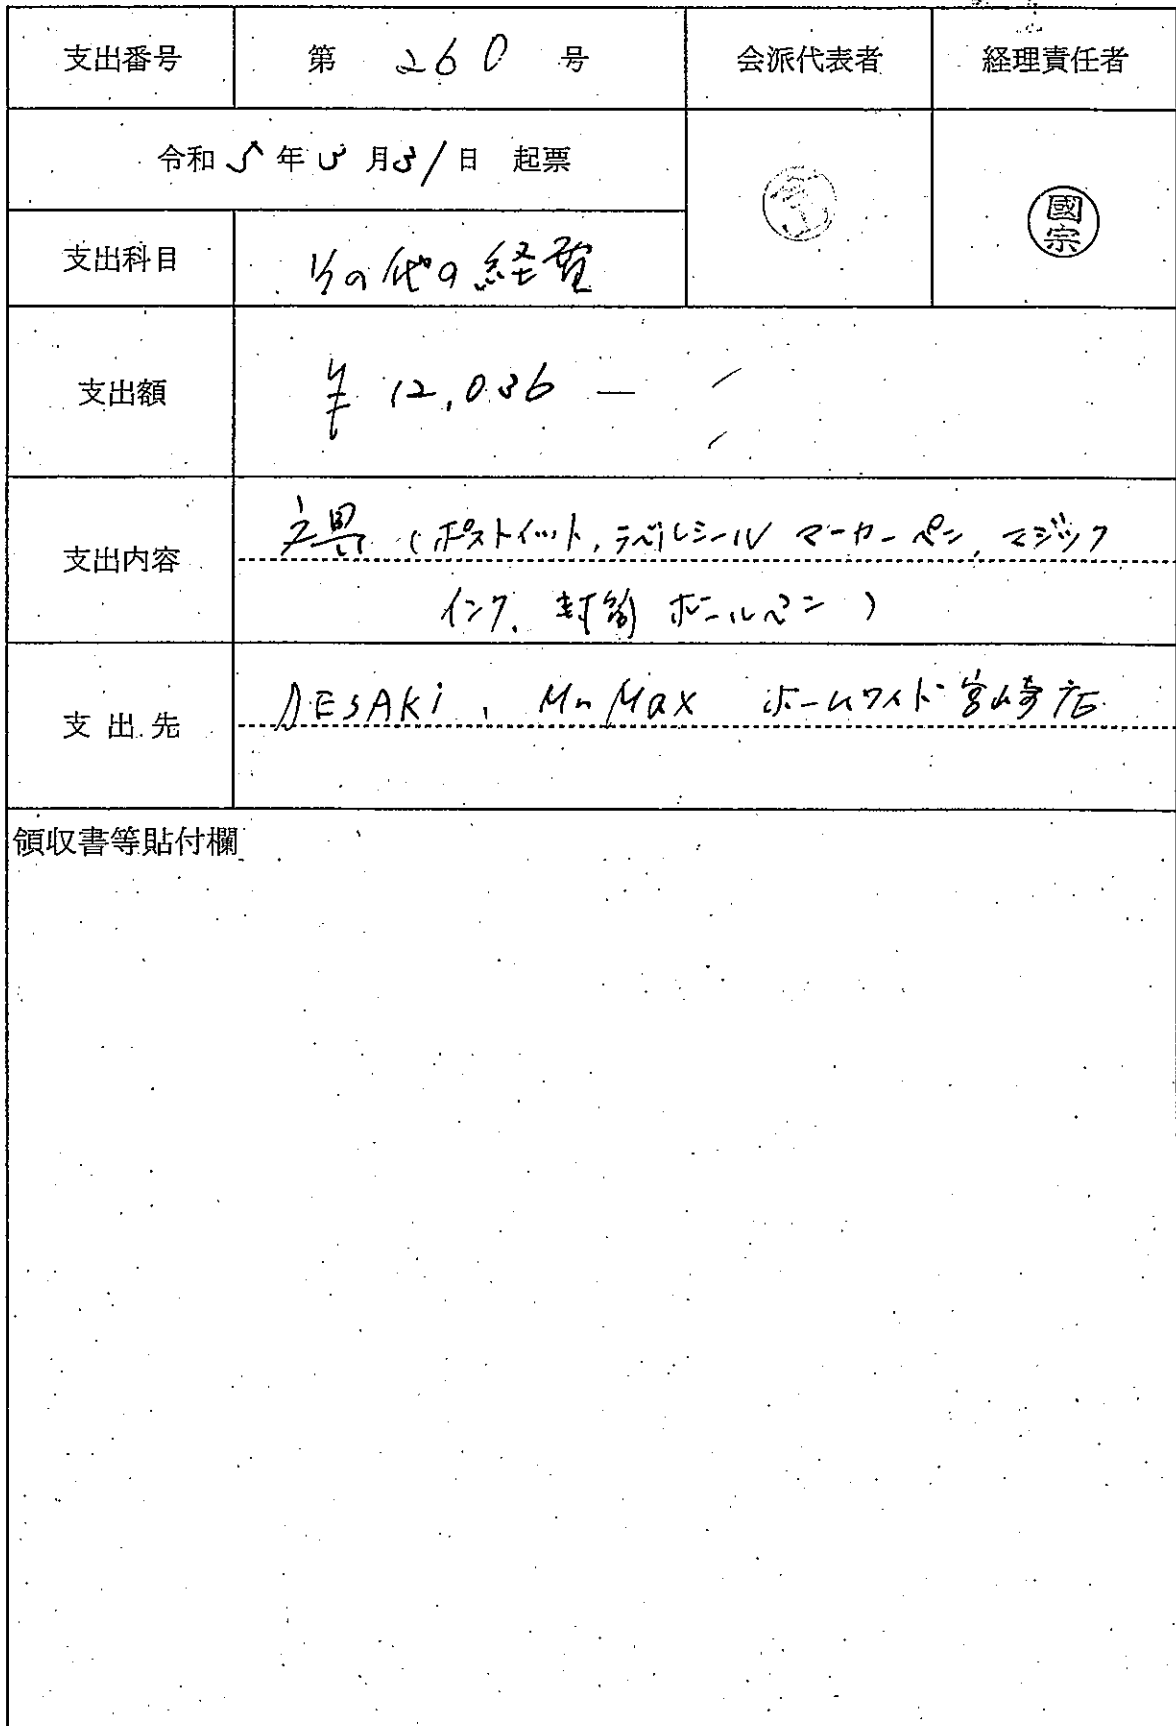 支出番号 第 260 号 会派代表者 経理責任者
令和 5 年 3 月 31 日 起票
國宗
支出科目 その他の経費
支出額 ¥ 12,036 ー
支出内容 文具 (ポストイット, ラベルシール マーカーペン, マジック
インク, 封筒 ボールペン )
支出先 DESAKi , MrMax ホームワイド宮崎店
領収書等貼付欄